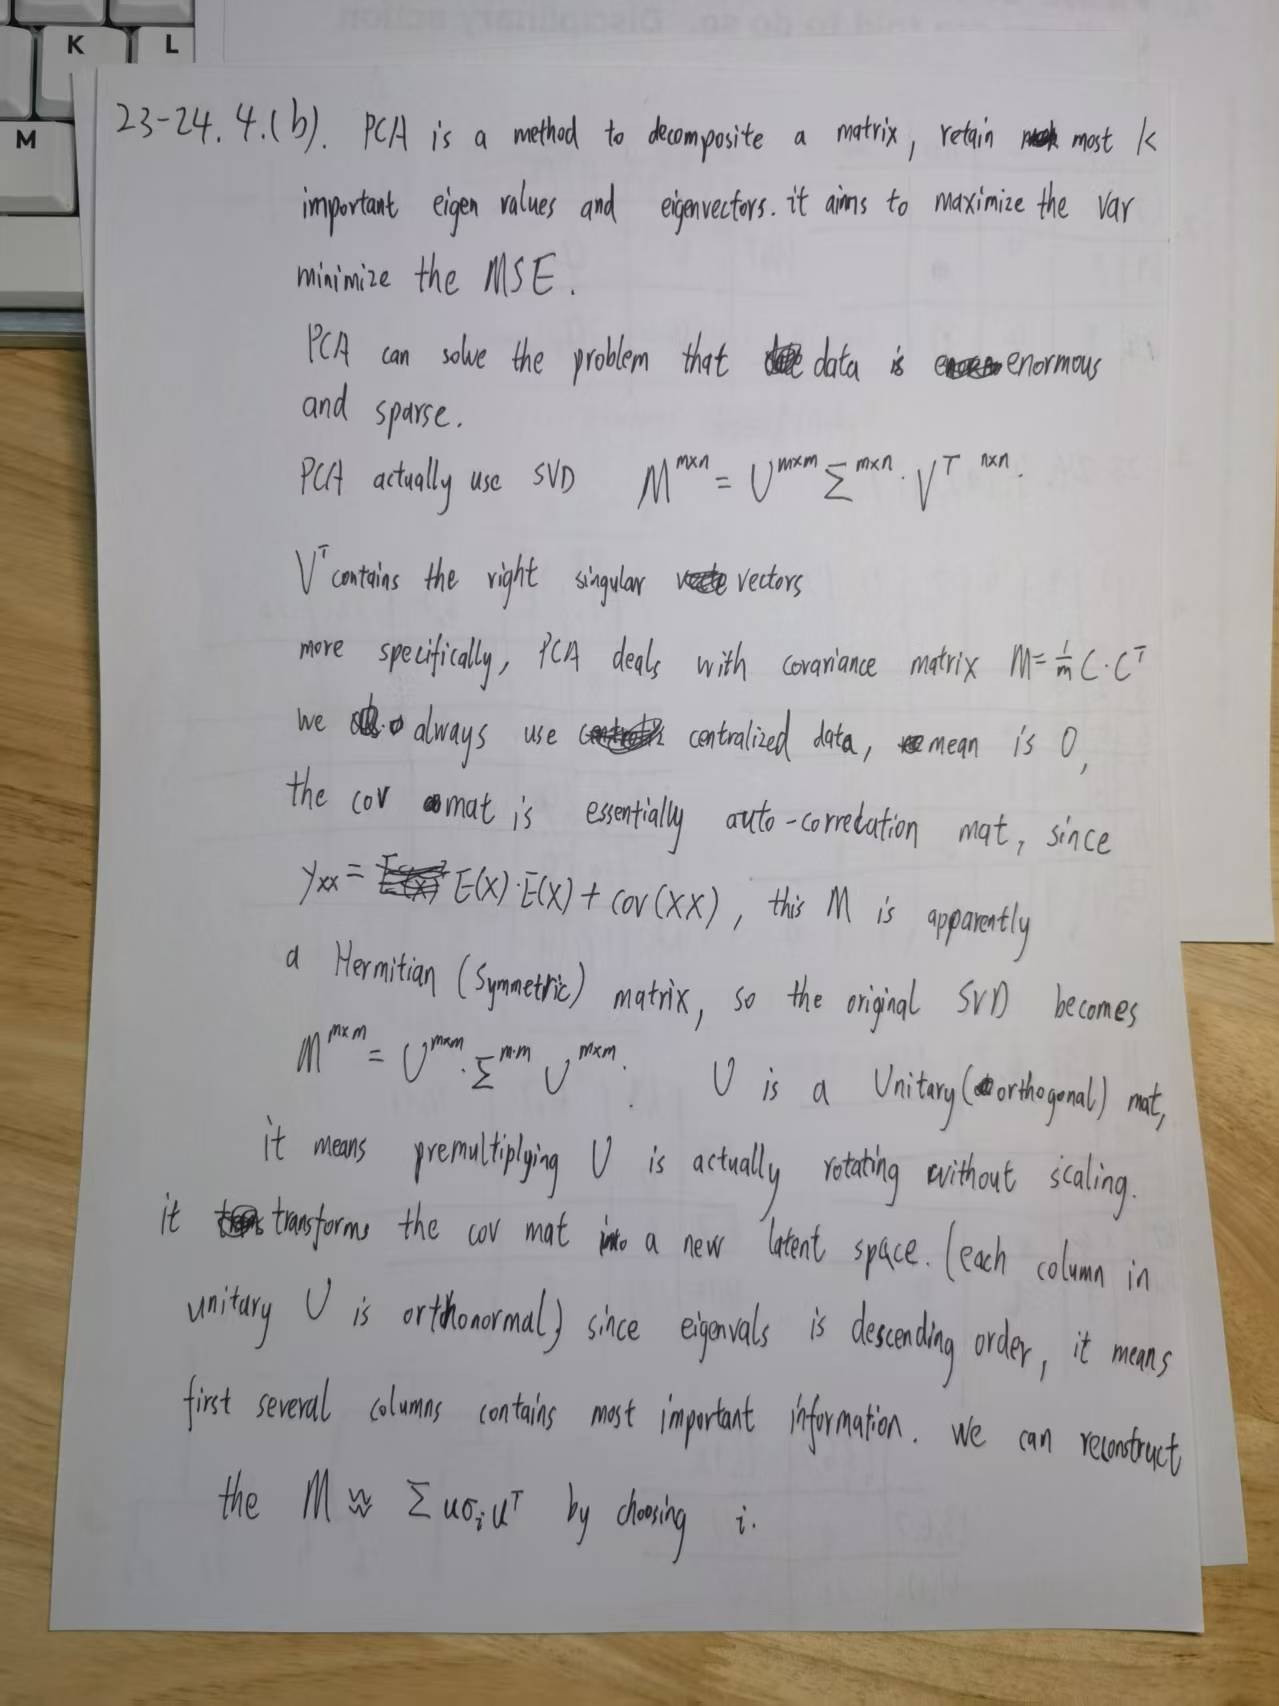 K L
M
23-24. 4.(b). PCA is a method to decomposite a matrix, retain most k
important eigen values and eigenvectors. it aims to maximize the var
minimize the MSE.
PCA can solve the problem that data is enormous
and sparse.
PCA actually use SVD M^{m×n} = U^{m×m} Σ^{m×n} · V^{T n×n}.
V^T contains the right singular vectors
more specifically, PCA deals with covariance matrix M = 1/m C · C^T
we always use centralized data, mean is 0,
the cov mat is essentially auto-correlation mat, since
γxx = E(X)·E(X) + cov(XX), this M is apparently
a Hermitian (Symmetric) matrix, so the original SVD becomes
M^{m×m} = U^{m×m} · Σ^{m·m} U^{m×m}. U is a Unitary (orthogonal) mat,
it means premultiplying U is actually rotating without scaling.
it transforms the cov mat into a new latent space. (each column in
unitary U is orthonormal) since eigenvals is descending order, it means
first several columns contains most important information. We can reconstruct
the M ≈ Σ uσ_i u^T by choosing i.